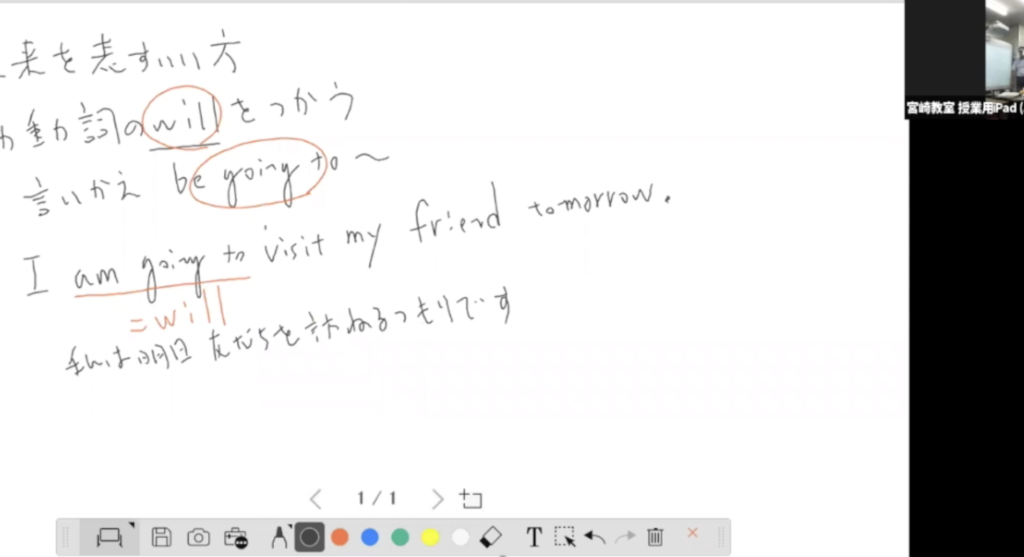 来を表すいい方
動詞のwillをつかう
言いかえ be going to ～
I am going to visit my friend tomorrow.
=will
私は明日 友だちを訪ねるつもりです
宮崎教室 授業用iPad (
1 / 1
T